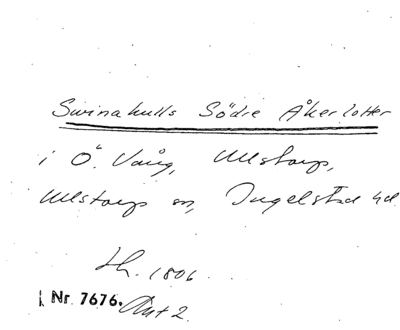 Svinakulls Södre Åkerlotter
i Ö. Vång, Ullstorp,
Ullstorps sn, Ingelstad hd.
1806
Nr 7676. Akt 2